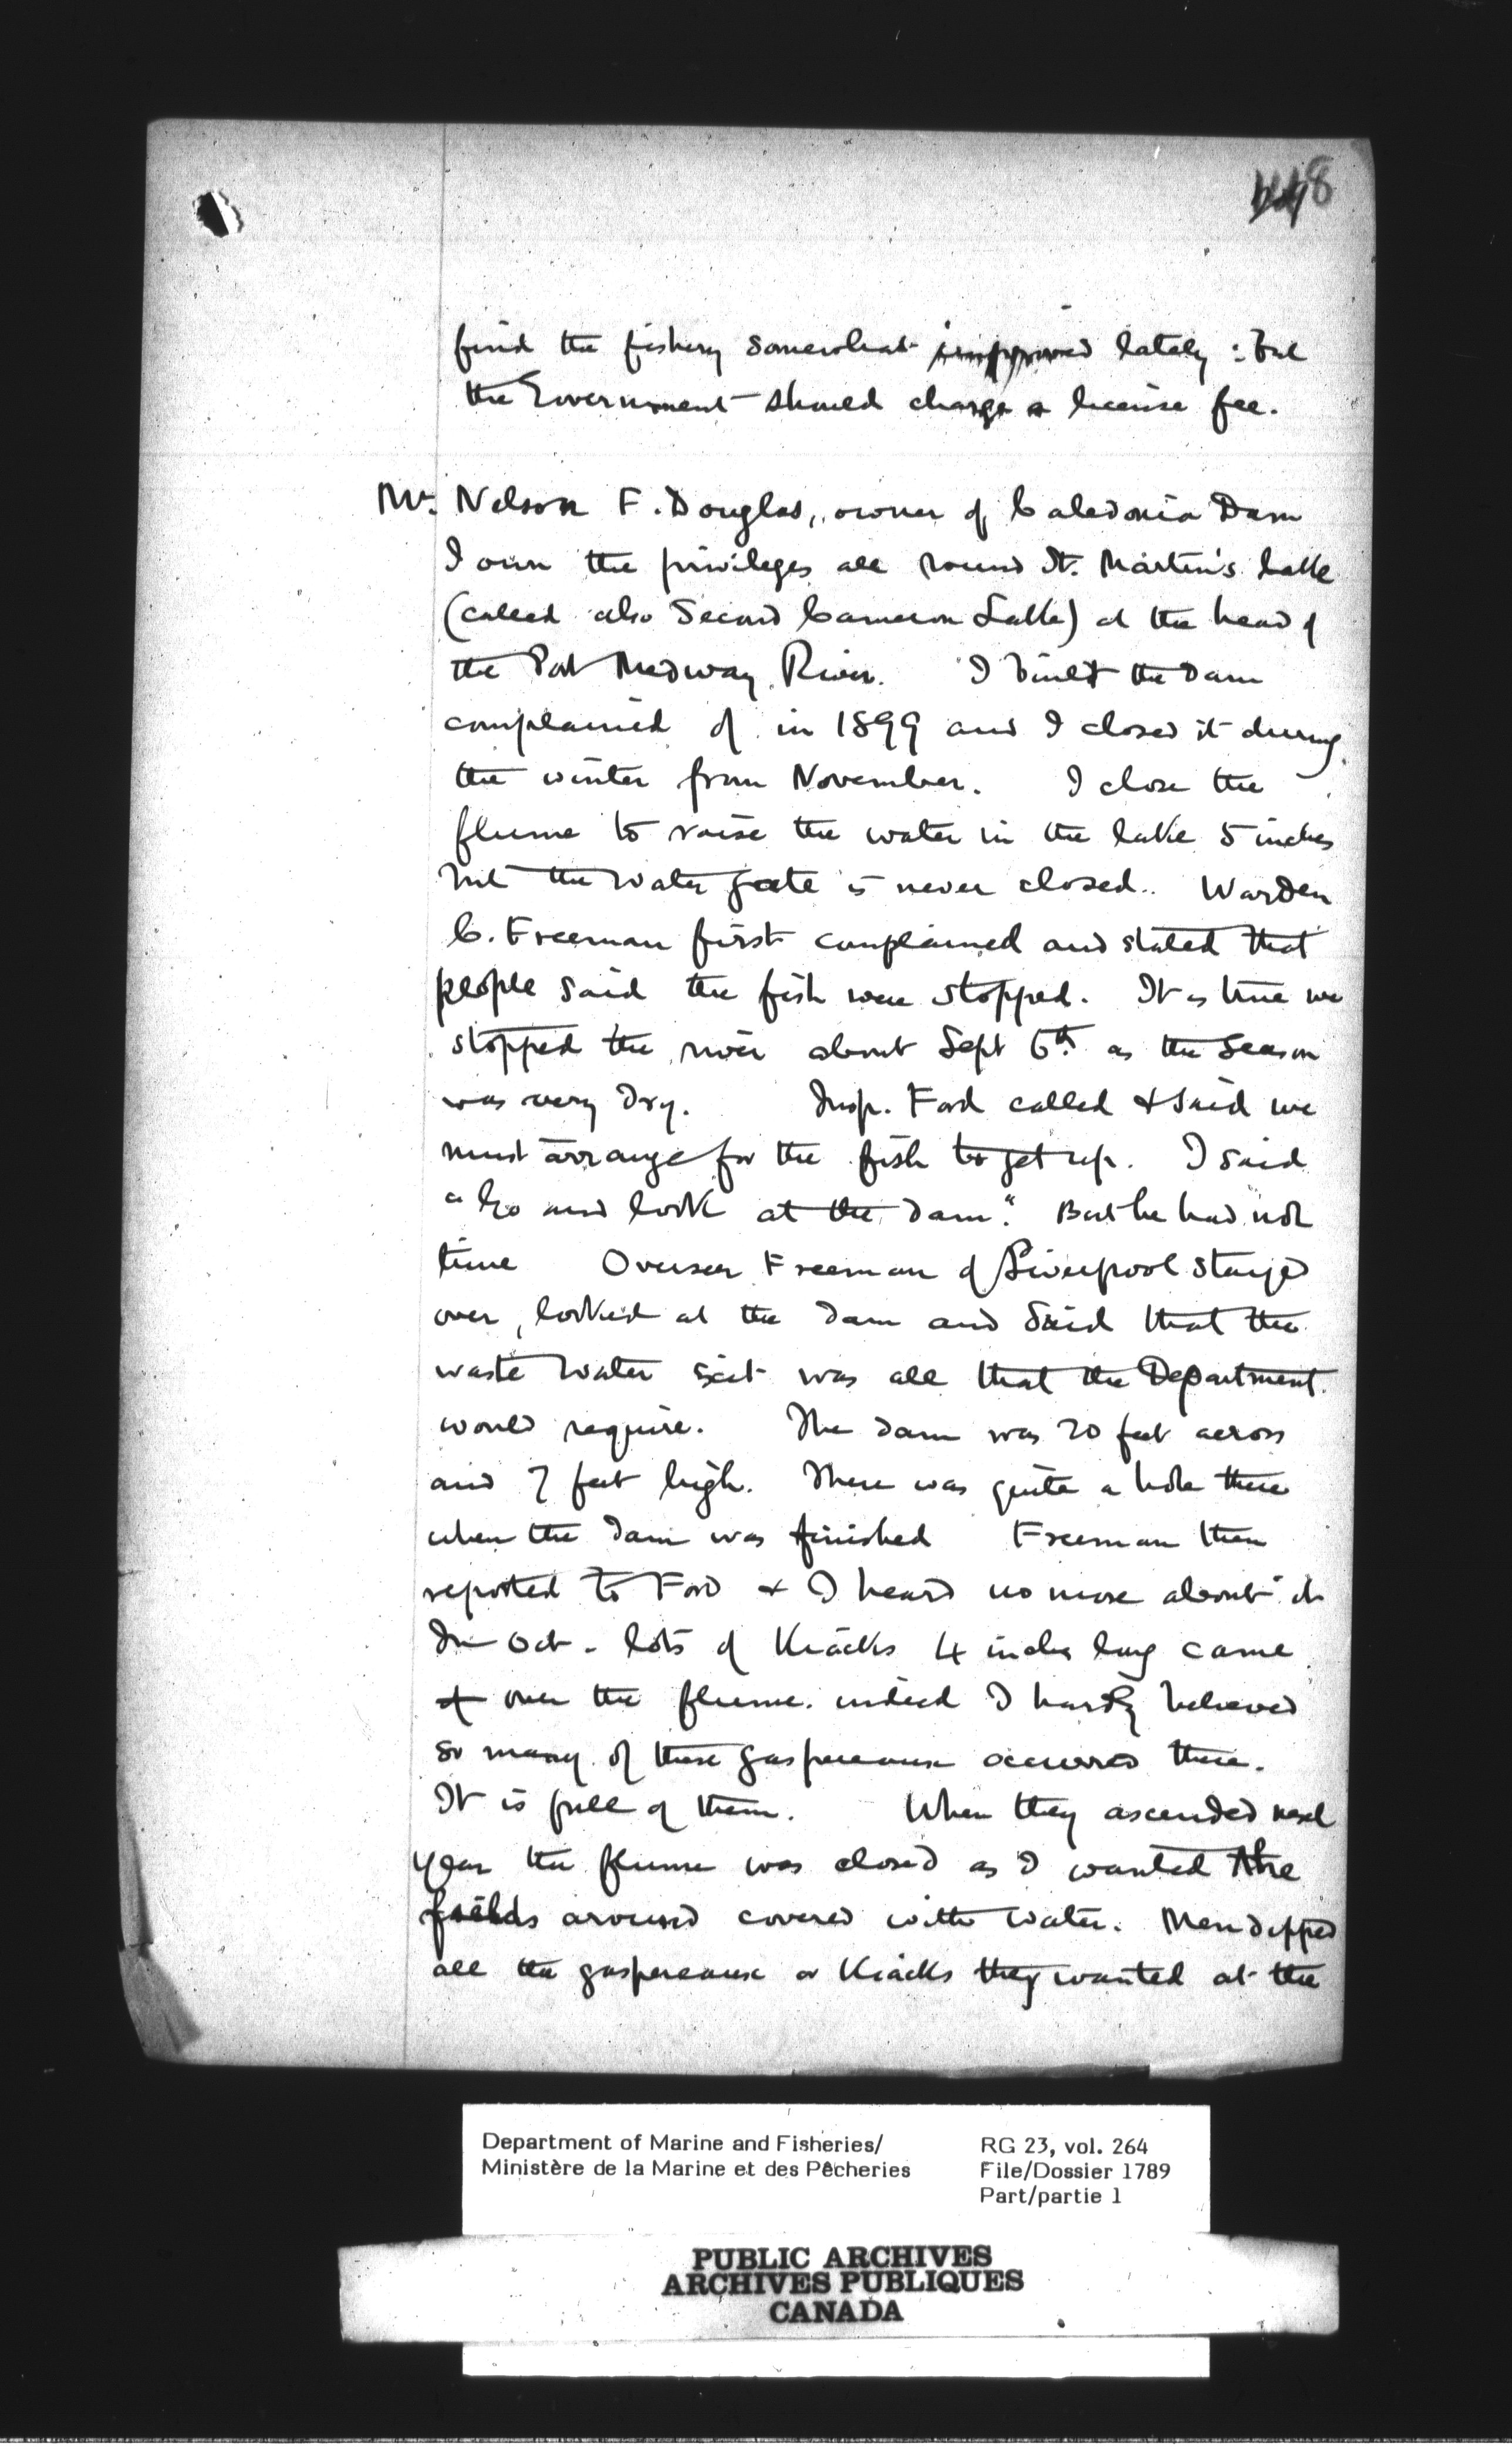 8
find the fishery somewhat improved lately : but
the Government should charge a license fee.
Mr. Nelson F. Douglas, owner of Caledonia Dam
I own the privileges all round St. Martin's Lake
(called also Second Cameron Lake) at the head of
the Port Medway River. I built the dam
complained of in 1899 and I closed it during
the winter from November. I close the
flume to raise the water in the lake 5 inches
but the water gate is never closed. Warden
C. Freeman first complained and stated that
people said the fish were stopped. It is true we
stopped the river about Sept 6th as the season
was very dry. Insp. Ford called & said we
must arrange for the fish to get up. I said
"Go and look at the dam." But he had not
time Overseer Freeman of Liverpool stayed
over, looked at the dam and said that the
waste water was all that the Department
would require. The dam was 20 feet across
and 7 feet high. There was quite a hole there
when the dam was finished Freeman then
reported to Ford & I heard no more about it
In Oct. lots of Kiacks 4 inches long came
over the flume. indeed I hardly believed
so many of these gaspereaux occurred there.
It is full of them. When they ascended next
year the flume was closed as I wanted the
fields around covered with water. Men dipped
all the gaspereaux or Kiacks they wanted at the
Department of Marine and Fisheries/
Ministère de la Marine et des Pêcheries
RG 23, vol. 264
File/Dossier 1789
Part/partie 1
PUBLIC ARCHIVES
ARCHIVES PUBLIQUES
CANADA